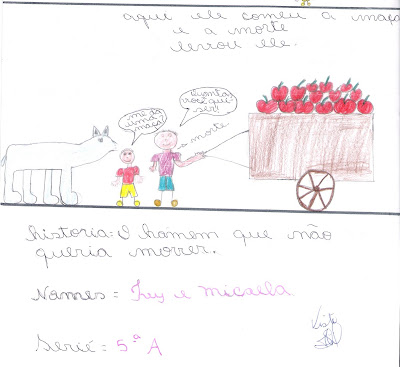 aqui ele comeu a maça
e a morte
levou ele.
me da
uma
maça
quantas
você qui-
ser!
a morte
historia: O homem que não
queria morrer.
Nomes = e Micaela
Serié = 5ª A